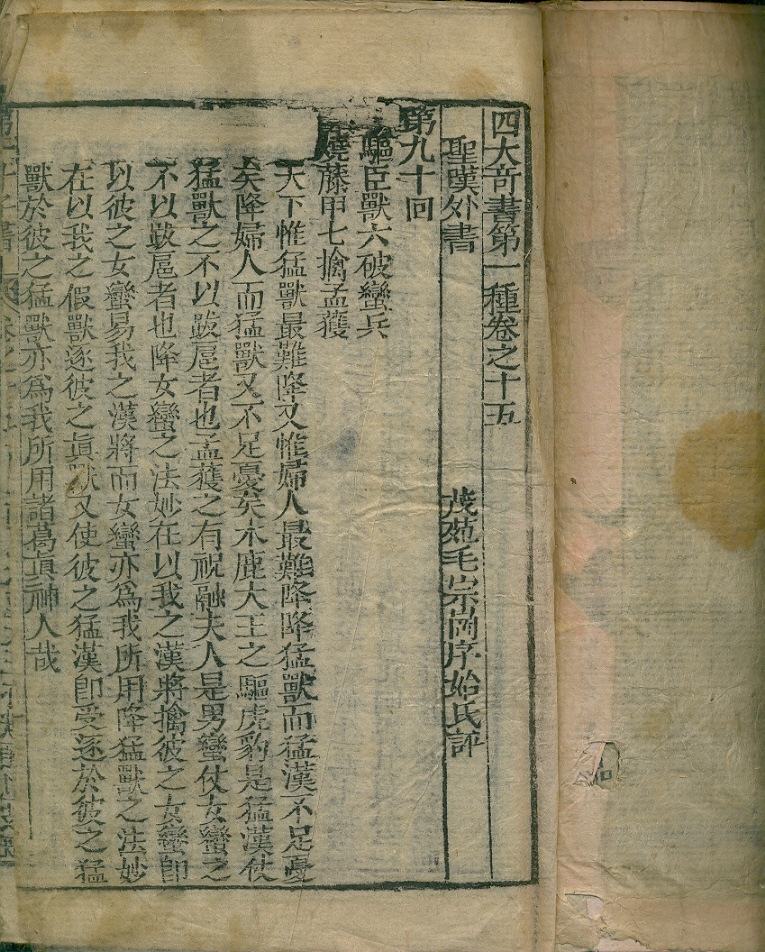 四大奇書第一種卷之十五
聖嘆外書
茂苑毛宗崗序始氏評
第九十回
驅巨獸六破蠻兵
燒藤甲七擒孟獲
天下惟猛獸最難降又惟婦人最難降降猛獸而猛漢不足憂
矣降婦人而猛獸又不足憂矣木鹿大王之驅虎豹是猛漢仗
猛獸之不以跋扈者也孟獲之有祝融夫人是男蠻仗女蠻之
不以跋扈者也降女蠻之法妙在以我之漢將擒彼之女蠻卽
以彼之女蠻易我之漢將而女蠻亦爲我所用降猛獸之法妙
在以我之假獸逐彼之眞獸又使彼之猛漢卽受逐於彼之猛
獸於彼之猛獸亦爲我所用諸葛眞神人哉